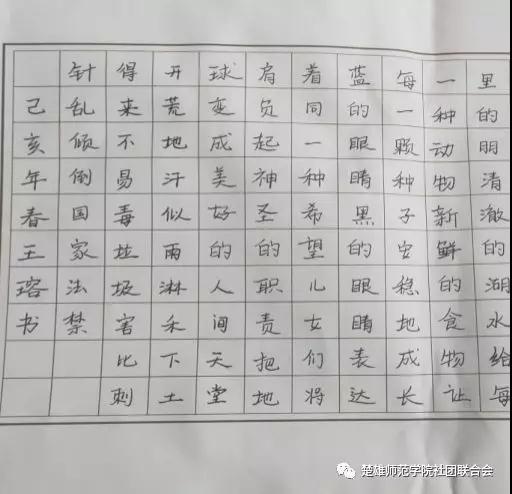 里的明清澈的湖水给每
一种动物新鲜的食物让
每一颗种子安稳地成长
蓝的眼睛黑的眼睛表达
着同一种希望儿女们将
肩负起神圣的职责把地
球变成美好的人间天堂
开荒地汗似雨淋禾下土
得来不易毒垃圾害比刺
针乱倾倒国家法禁
己亥年春王瑢书
楚雄师范学院社团联合会